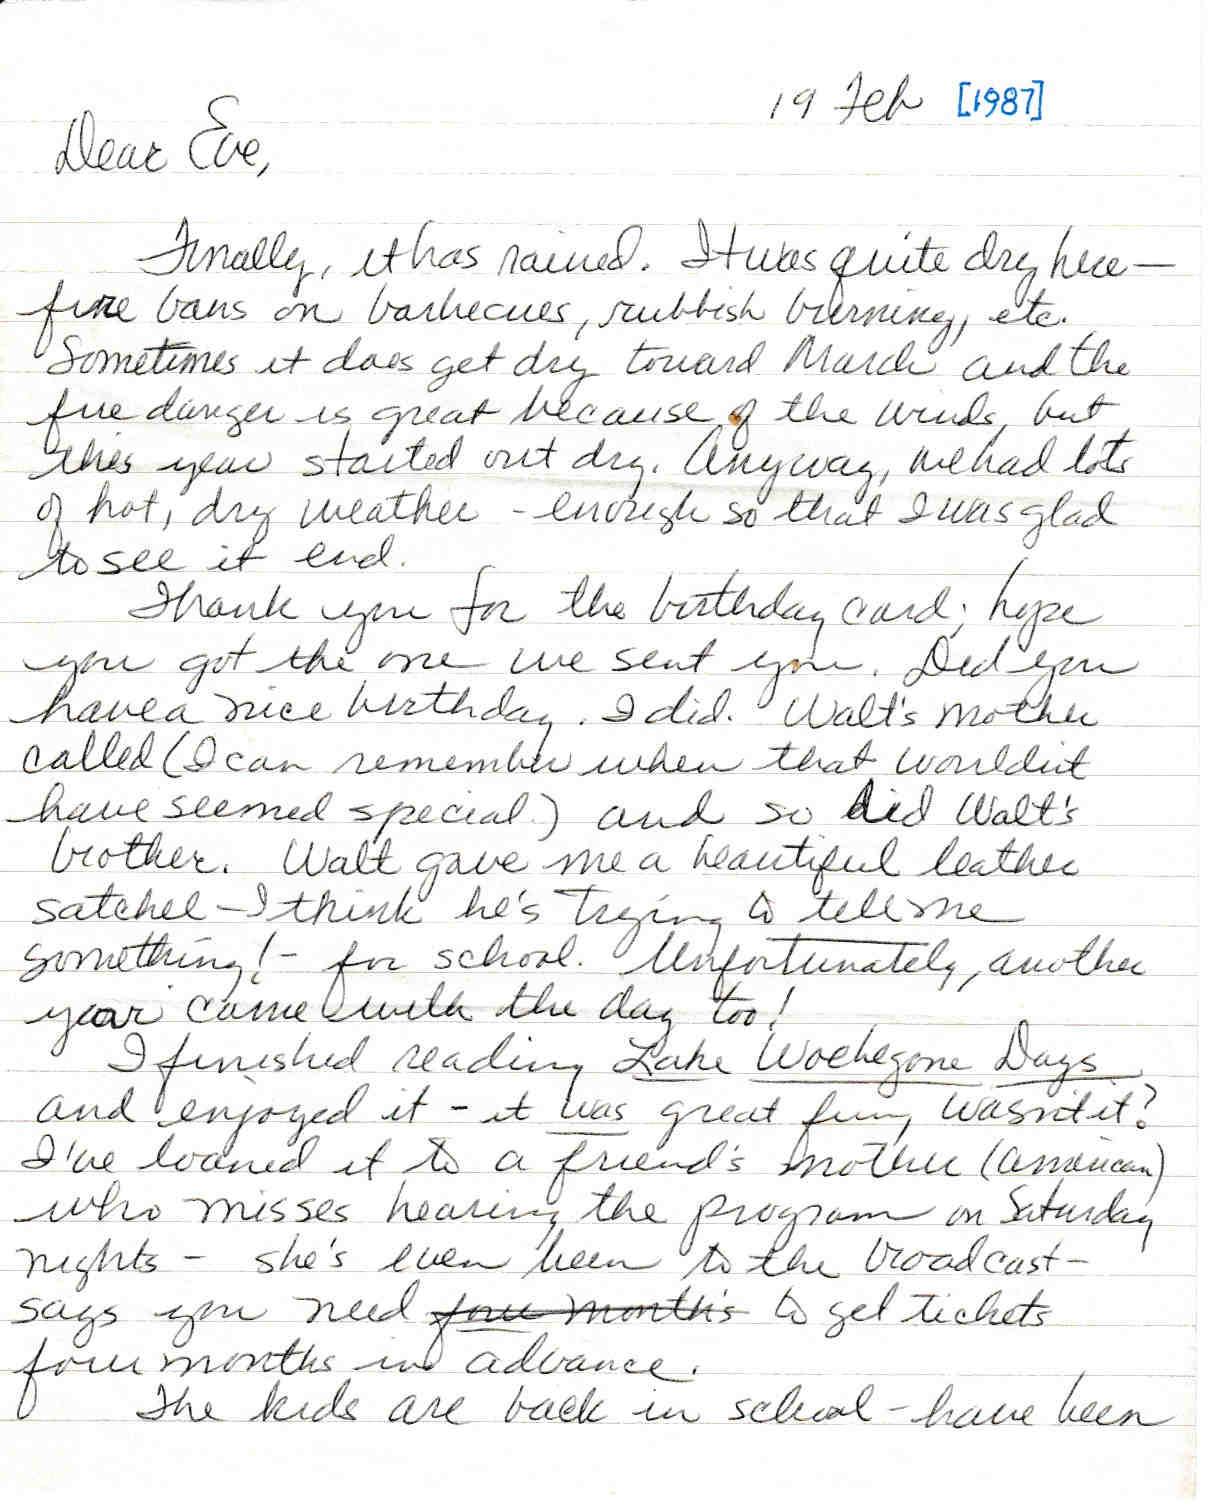 19 Feb [1987]
Dear Eve,
Finally, it has rained. It was quite dry here —
fire bans on barbecues, rubbish burning, etc.
Sometimes it does get dry toward March and the
fire danger is great because of the winds, but
this year started out dry. Anyway, we had lots
of hot, dry weather - enough so that I was glad
to see it end.
Thank you for the birthday card; hope
you got the one we sent you. Did you
have a nice birthday. I did. Walt's mother
called (I can remember when that wouldn't
have seemed special) and so did Walt's
brother. Walt gave me a beautiful leather
satchel - I think he's trying to tell me
something! - for school. Unfortunately, another
year came with the day too!
I finished reading Lake Wobegone Days
and enjoyed it - it was great fun, wasn't it?
I've loaned it to a friend's mother (American)
who misses hearing the program on Saturday
nights - she's even been to the broadcast -
says you need four months to get tickets
four months in advance.
The kids are back in school - have been